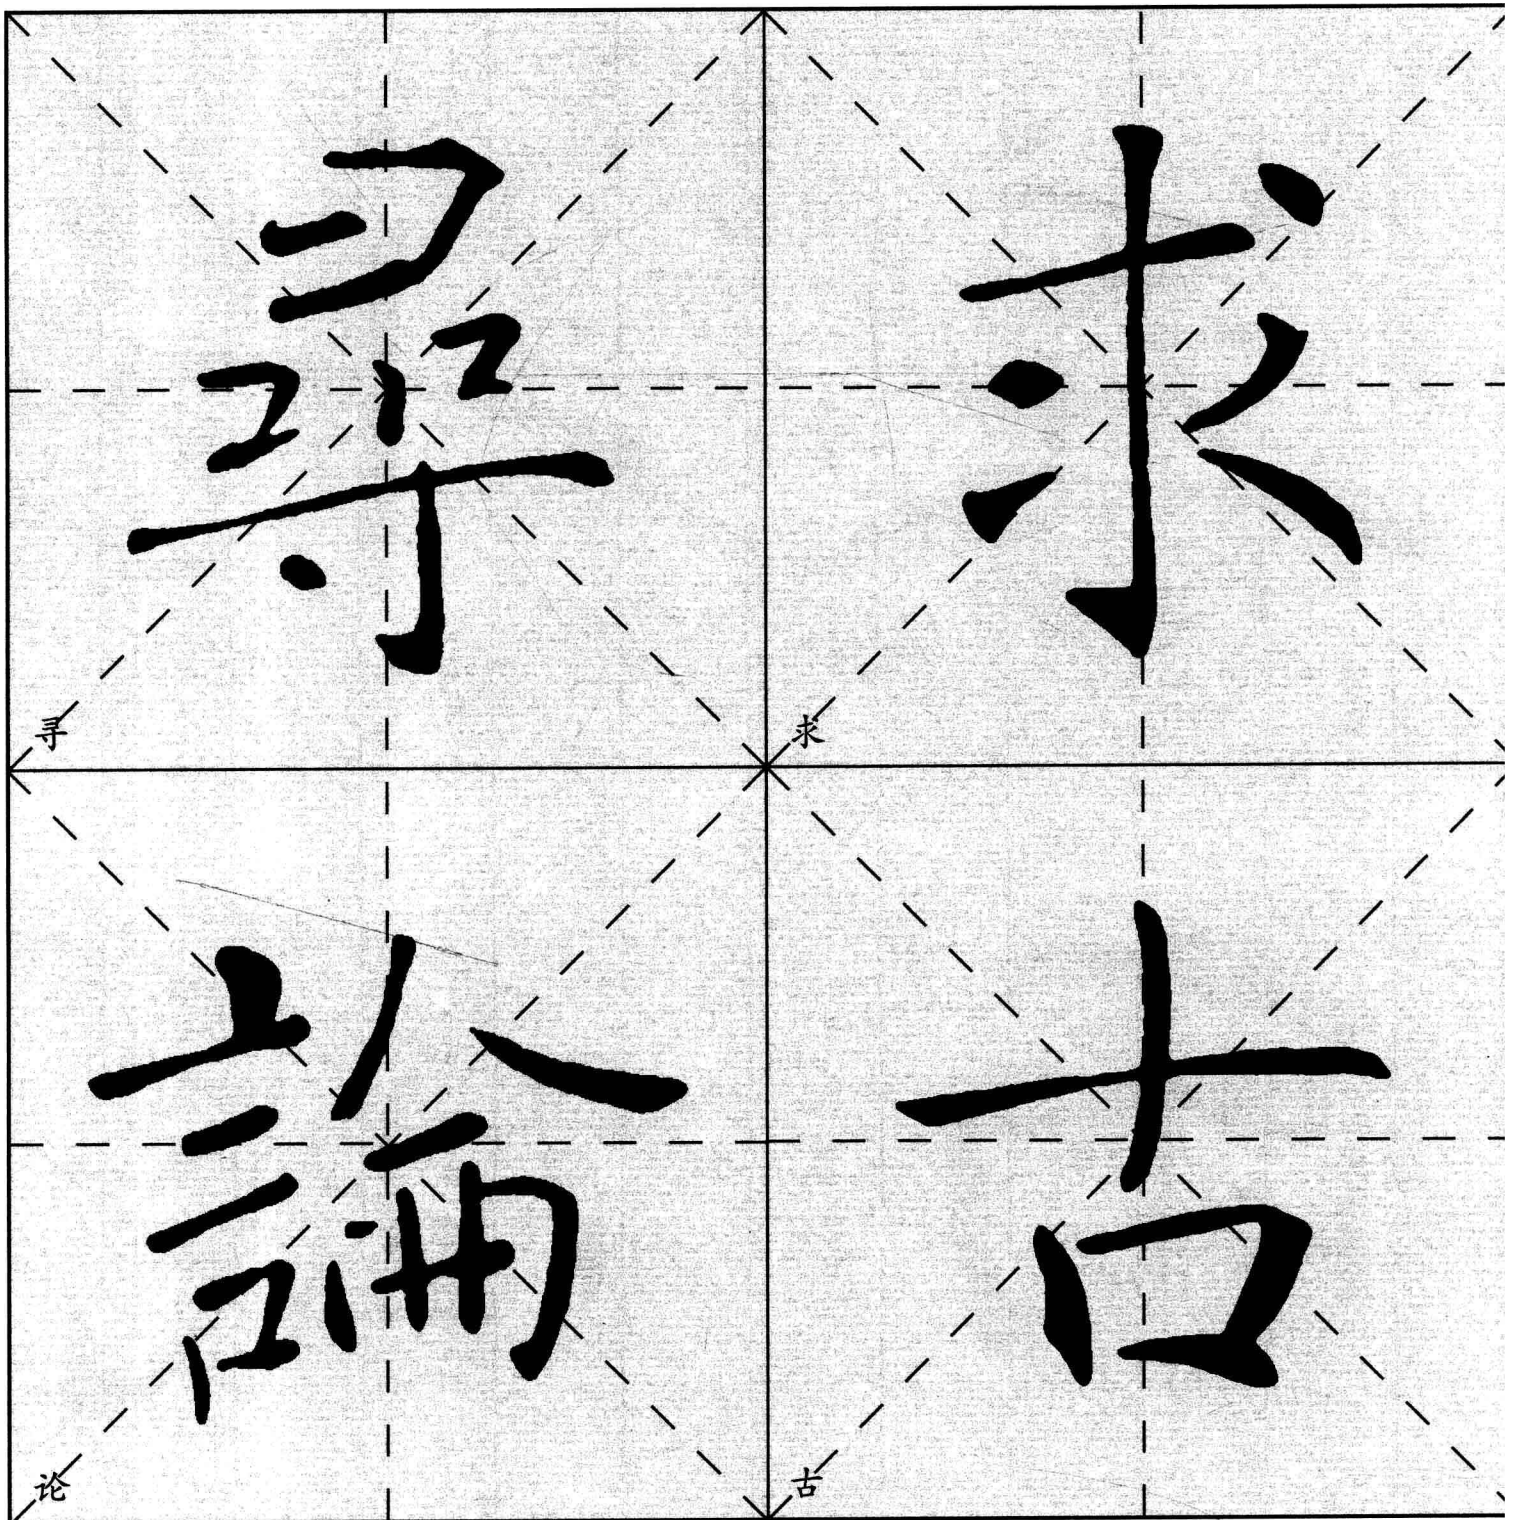 求
求
古
古
尋
寻
論
论